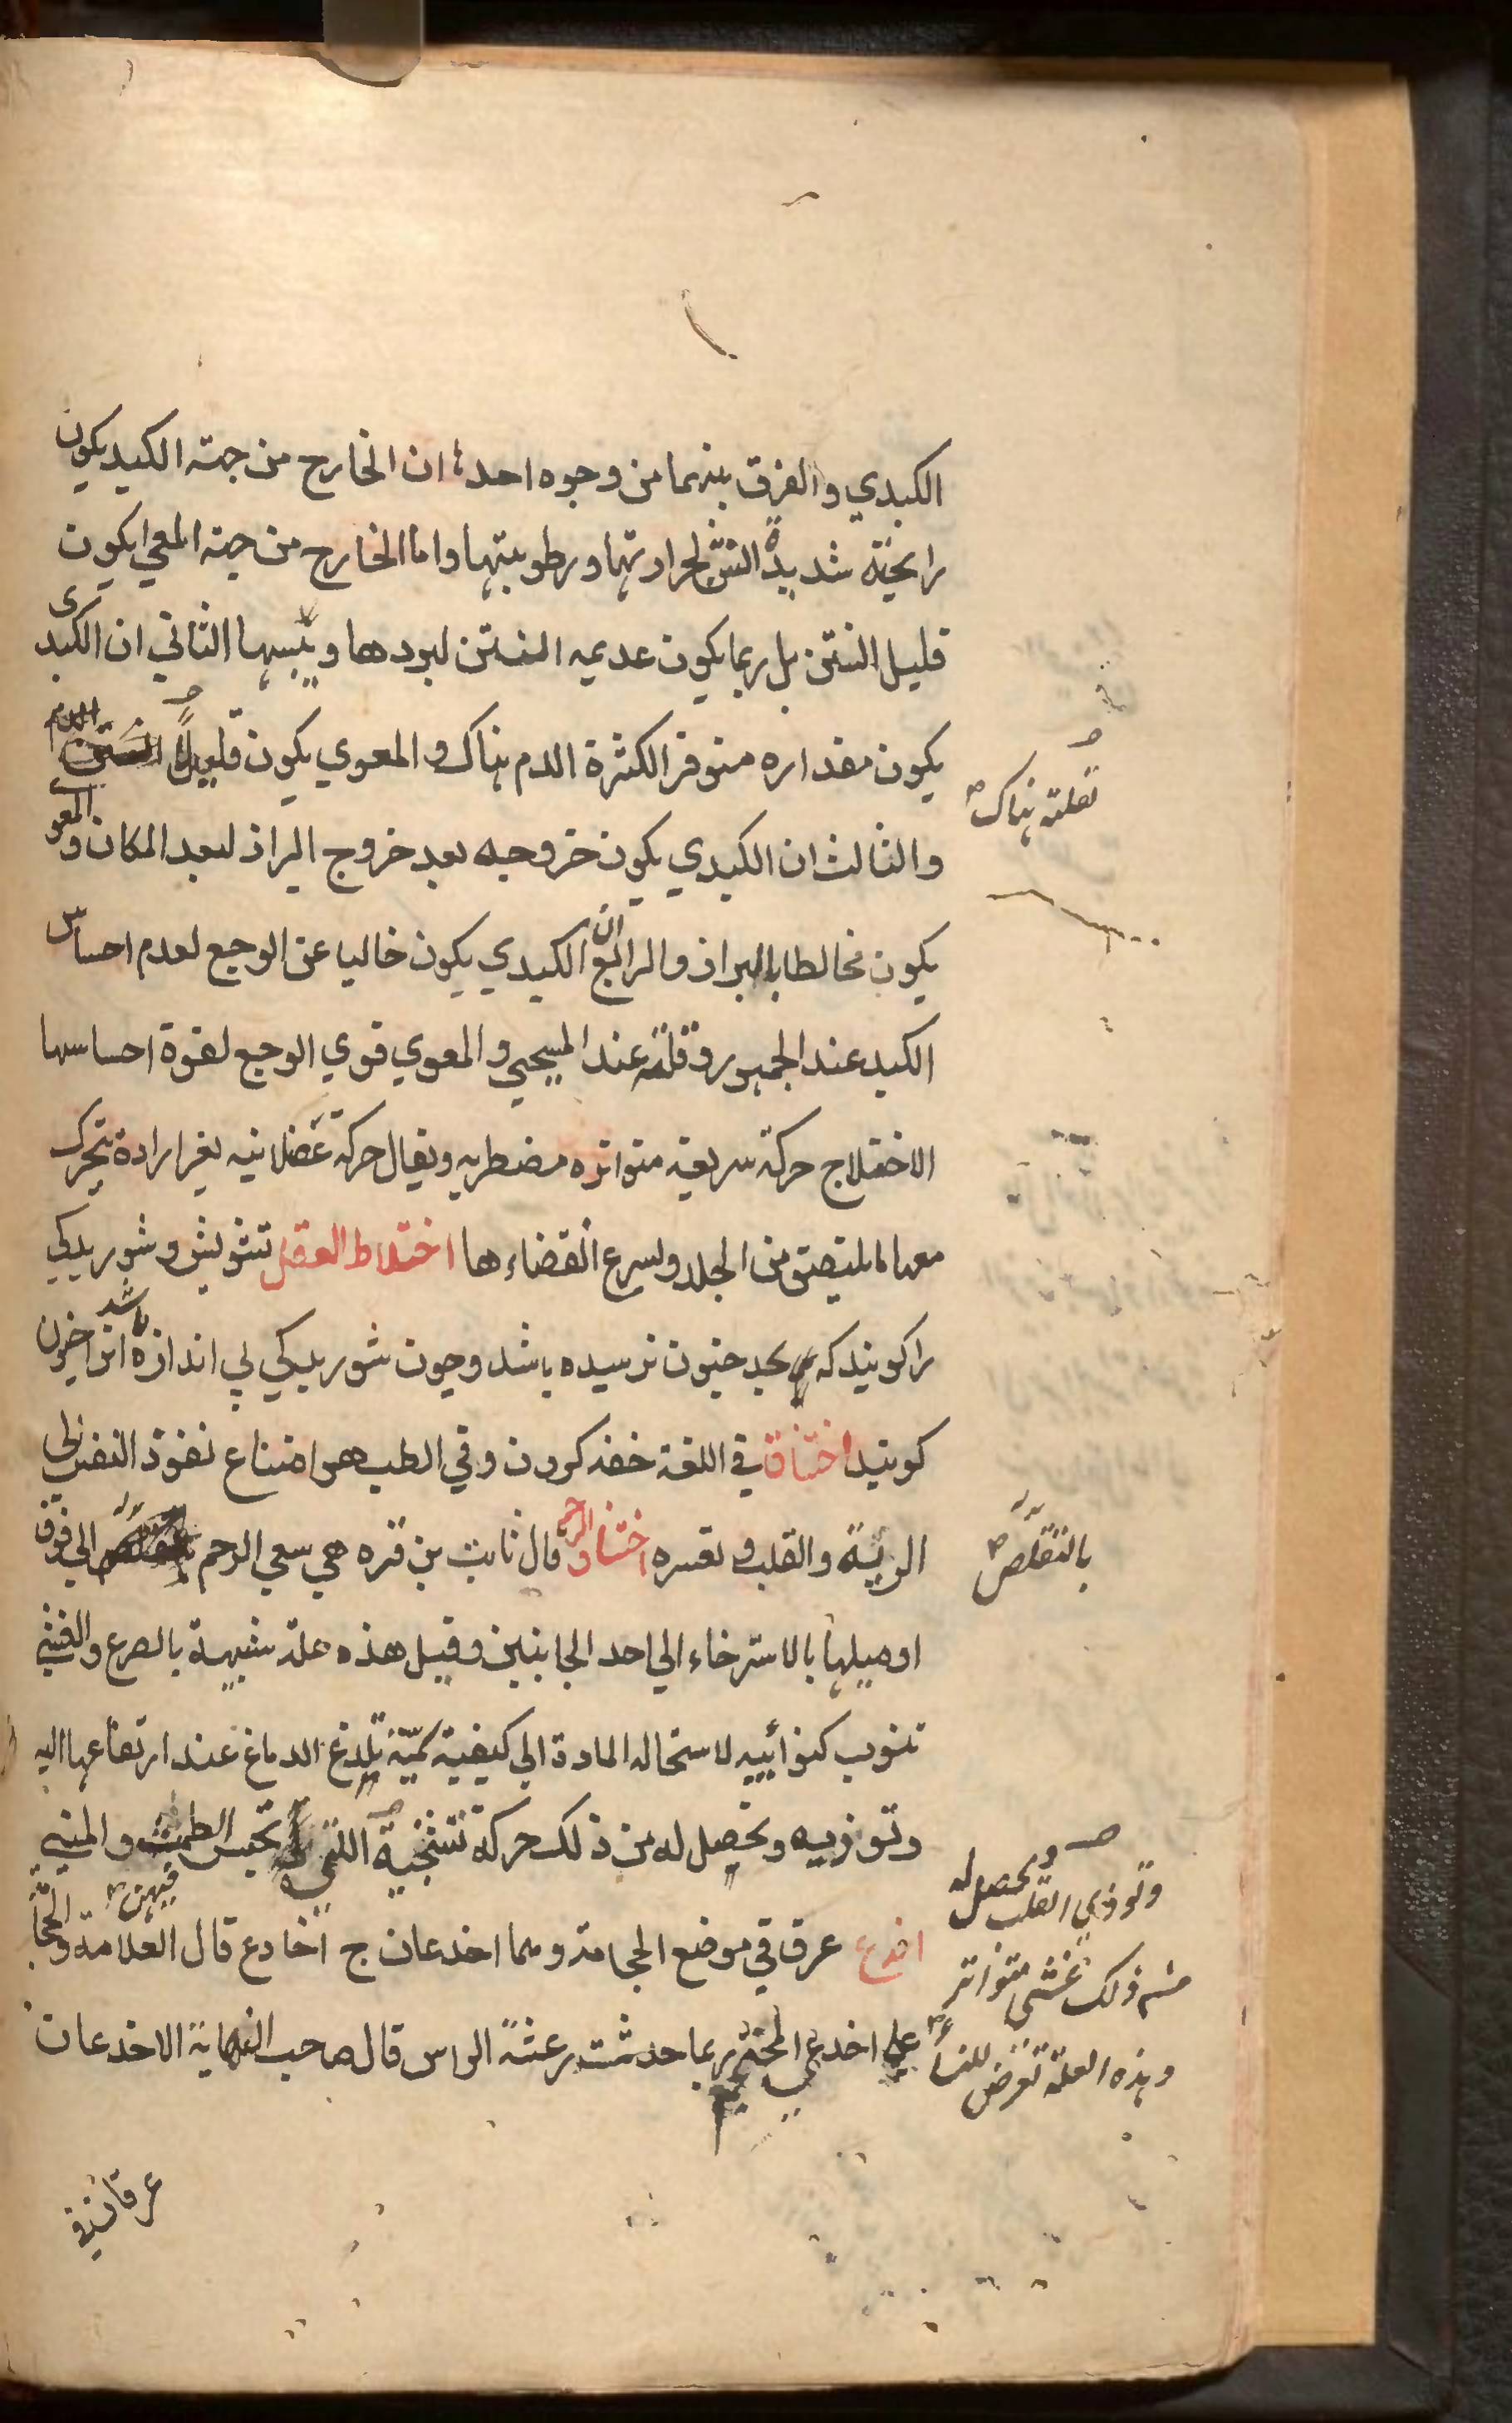 الكبدي والفرق بينهما من وجوه احدها ان الخارج من جهته الكبد يكون
رايحته شديدة النتن لحرارتها ورطوبتها واما الخارج من جهته المعي يكون
قليل النتن بل ربما يكون عديم النتن لبردها ويبسها الثاني ان الكبدى
يكون مقداره متوفرا لكثرة الدم هناك والمعوي يكون قليلاً
لقلته هناك
والثالث ان الكبدي يكون خروجه بعد خروج البراز لبعد المكان والمعوي
يكون مخالطا بالبراز والرابع ان الكبدي يكون خاليا عن الوجع لعدم احساس
الكبد عند الجمهور وقلته عند المسيحي والمعوي قوي الوجع لقوة احساسها
الاختلاج حركة سريعه متواتره مضطربه ويقال حركة عضلانيه بغير ارادة يتحرك
معها ما يلتصق من الجلد ويسرع انقضاءها اختلاط العقل تشويش وشوريدكي
را كويند كه بحد جنون نرسيده باشد وچون شوريدكي بي اندازه باشد انرا جنون
كويند اختناق في اللغة خفه كردن وفي الطب هو امتناع نفوذ النفس الى
الرية والقلب وتعسره اختناق الرحم قال ثابت بن قره هي سعي الرحم الى فوق
بالتقلص
او ميلها بالاسترخاء الي احد الجانبين وقيل هذه علة شبيهة بالصرع والغشي
تنوب كنوائبيه لاستحاله المادة الي كيفية سمّية تلدغ الدماغ عند ارتفاعها اليه
وتوذيه ويحصل له من ذلك حركة تشنجية اللتي تحبس الطمث والمني
فيهن
وتوذي القلب ويحصل له
من ذلك غشي متواتر
وهذه العلة تعرض للنساء
اخدع عرق في موضع الحجامة وهما اخدعان ج اخادع قال العلامة والحجامة
علي اخدع المحتجم ربما حدثت رعشة الراس قال صاحب النهاية الاخدعان
عرقان في